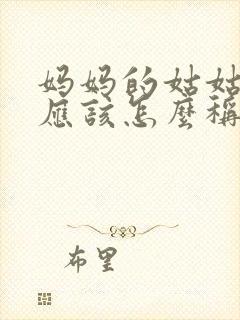 妈妈的姑姑
應該怎麼稱
布里